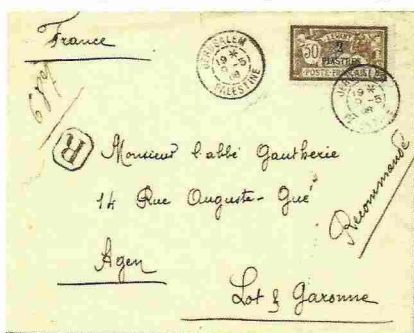 France
JERUSALEM
PALESTINE
50
LEVANT
2
PIASTRES
POSTE FRANÇAISE
R
Monsieur l'abbé Gautherie
14 Rue Auguste-Gué
Recommandé
Agen
Lot & Garonne